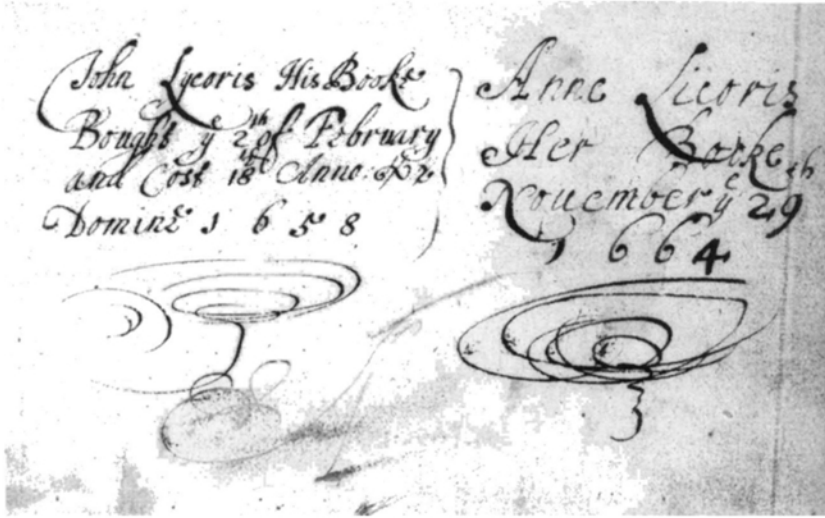 John Lycoris His Booke
Bought ye 2th of February
and Cost 18d Anno:
Domine 1658
Anne Licoris
Her Booke
November ye 29th
1664